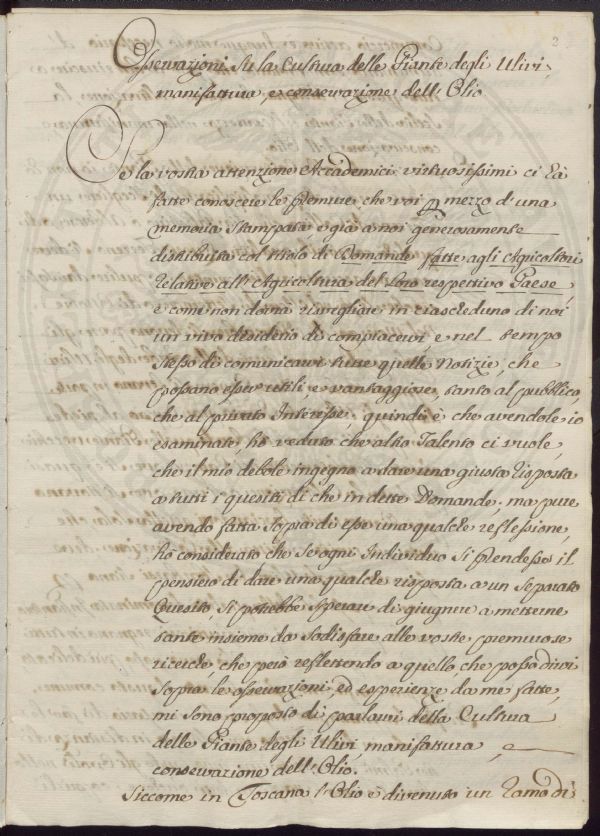 2
Osservazioni su la Cultura delle Piante degli Ulivi,
manifattura, e conservazione dell'Olio
Se la vostra attenzione Accademici virtuosissimi ci hà
fatte conoscere le premure, che voi p mezzo d'una
memoria stampata e già a noi generosamente
distribuita col titolo di Domande fatte agli Agricoltori
relative all'Agricoltura del Loro respettivo Paese,
e come non dovrà risvegliare in ciascheduno di noi
un vivo desiderio di compiacervi, e nel tempo
stesso di comunicarvi tutte quelle Notizie, che
possano esser utili, e vantaggiose, tanto al pubblico,
che al privato Interesse, quindi è che avendole io
esaminate, hò veduto che altro Talento ci vuole,
che il mio debole ingegno a dare una giusta risposta
a tutti i quesiti di che in dette Domande, ma pure
avendo fatta sopra di esse una qualche reflessione,
hò considerato che se ogni Individuo si prendesse il
pensiero di dare una qualche risposta a un separato
Quesito, si potrebbe sperare di giugnere a metterne
tante insieme da sodisfare alle vostre premurose
ricerche, che però reflettendo a quello, che posso dirvi
sopra le osservazioni, ed esperienze da me fatte,
mi sono proposto di parlarvi della Cultura
delle Piante degli Ulivi, manifattura, e
conservazione dell'Olio.
Siccome in Toscana l'Olio è divenuto un ramo di